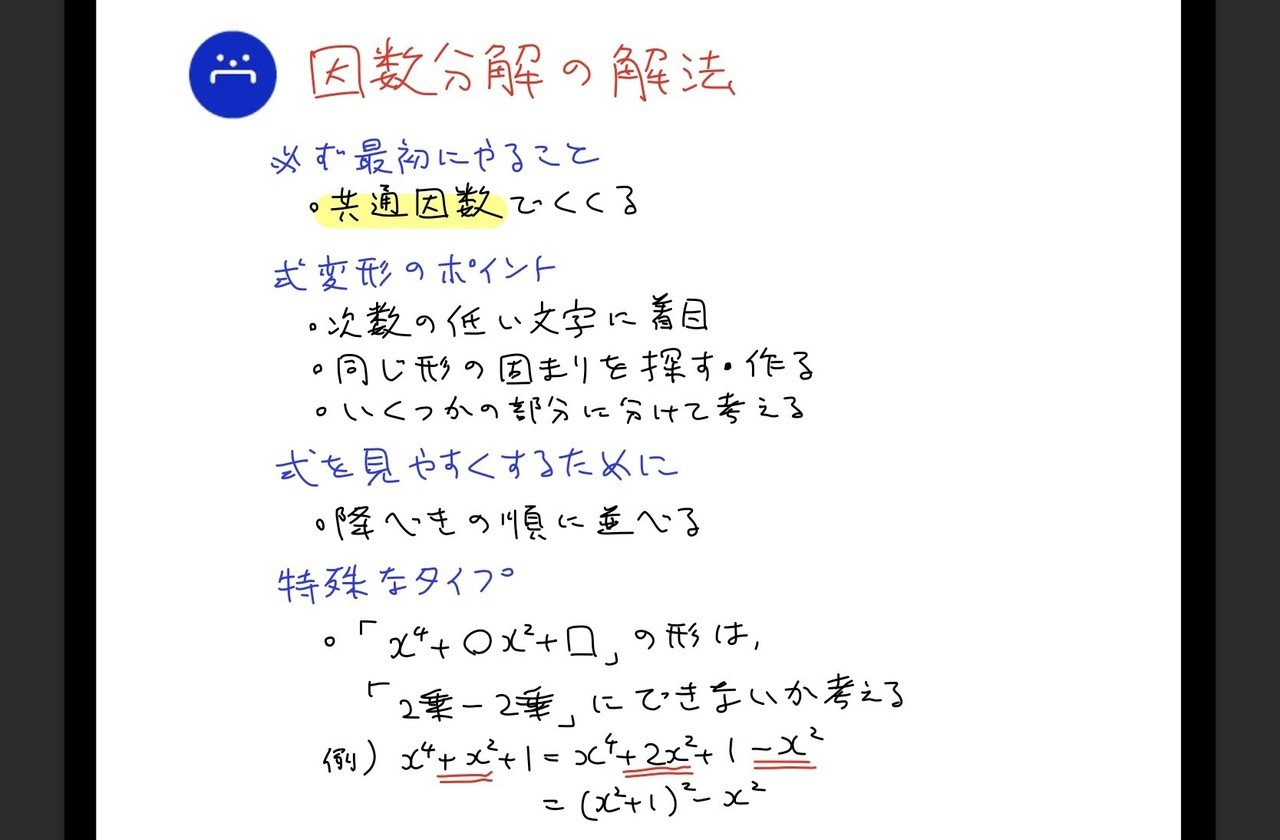 因数分解の解法
必ず最初にやること
・共通因数でくくる
式変形のポイント
・次数の低い文字に着目
・同じ形の固まりを探す・作る
・いくつかの部分に分けて考える
式を見やすくするために
・降べきの順に並べる
特殊なタイプ
・「x⁴+○x²+□」の形は,
「2乗-2乗」にできないか考える
例) x⁴+x²+1=x⁴+2x²+1-x²
=(x²+1)²-x²